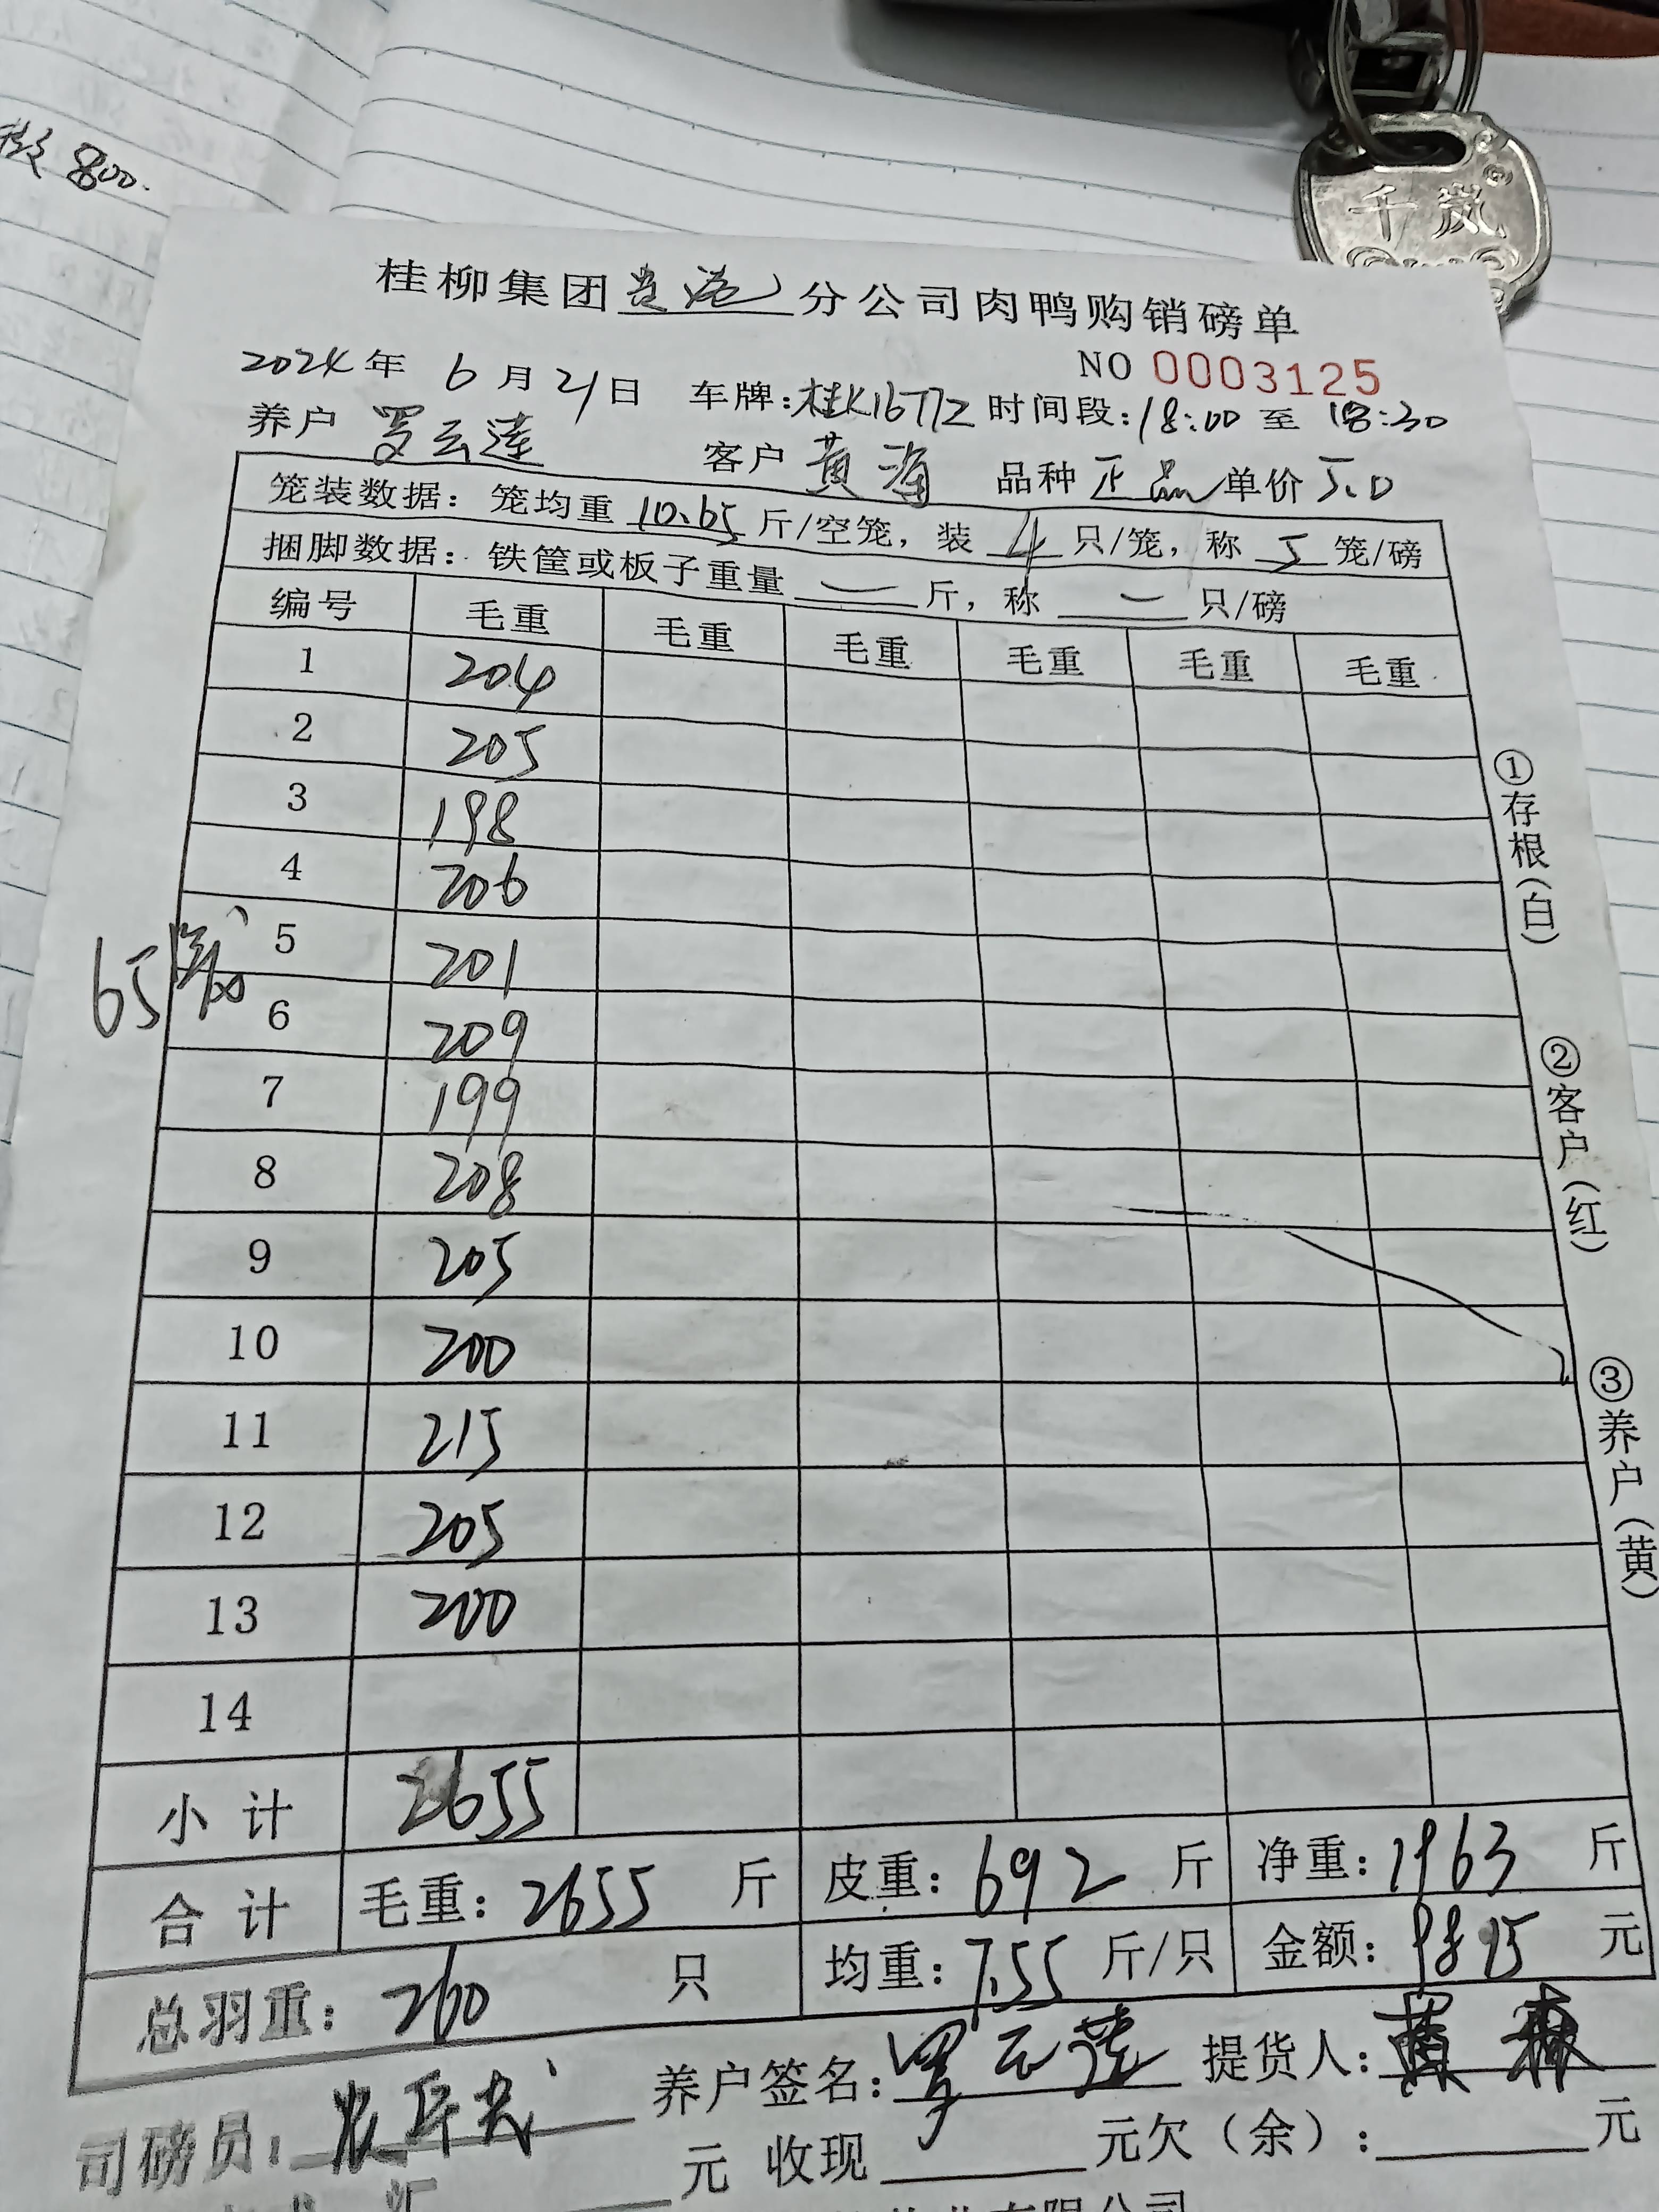 800.
千岚
桂柳集团贵港分公司肉鸭购销磅单
NO 0003125
2024年 6月21日 车牌:桂K16T72 时间段:18:00至18:30
养户 罗云莲 客户 黄海 品种 正品 单价 5.0
笼装数据: 笼均重 10.65 斤/空笼, 装 4 只/笼, 称 5 笼/磅
捆脚数据: 铁筐或板子重量 — 斤, 称 — 只/磅
编号 毛重 毛重 毛重 毛重 毛重 毛重
1 204
2 205
3 198
4 206
5 201
6 209
7 199
8 208
9 205
10 200
11 215
12 205
13 200
14
65
小计 2655
合计 毛重: 2655 斤 皮重: 692 斤 净重: 1963 斤
总羽重: 260 只 均重: 7.55 斤/只 金额: 9815 元
司磅员: 养户签名: 罗云莲 提货人: 黄
元 收现 元欠(余): 元
①存根(白)
②客户(红)
③养户(黄)